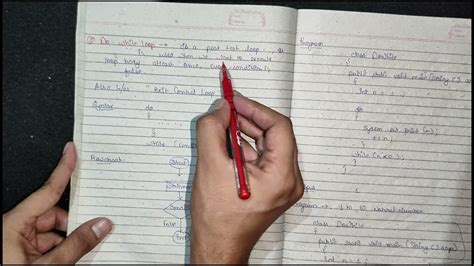 Do while loop → is a post test loop, It
is used when we want to execute
loop body atleast once, even condition is
false.
Also k/as "Exit Control Loop"
Syntax do
{
....
}
while (
Flowchart
Start
False
Program
class DoWhile
{
public static void main (String
{
int n = 1;
do
{
System. out. print (n);
++n;
}
while (n<0);
}
}
1 to 10 natural number
class DoWhile
{
public static void main (String [] args)
{
int n = 1